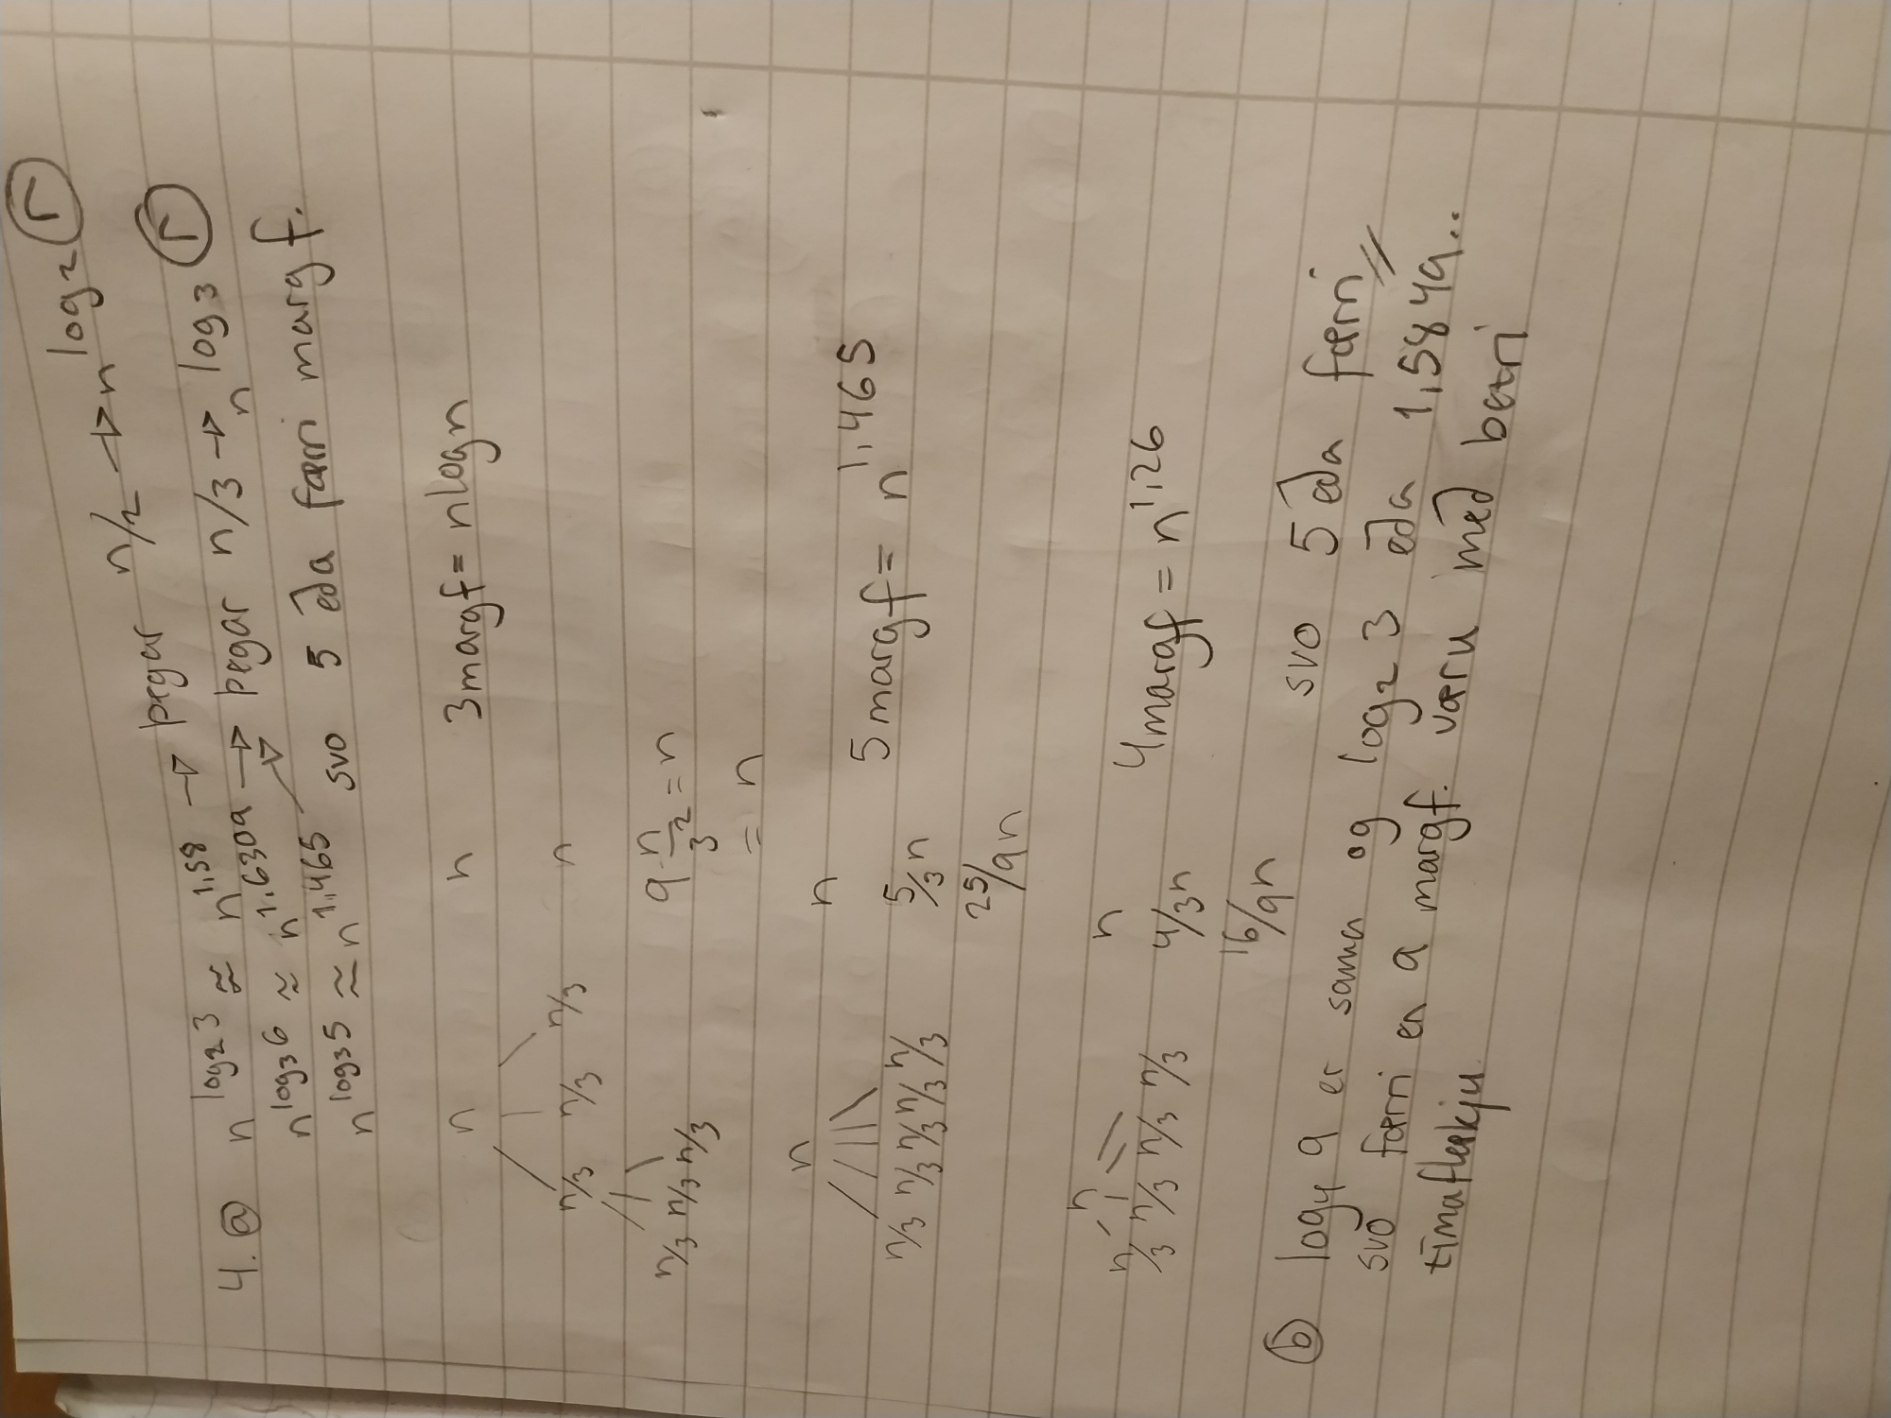 4. ⓐ n^log₂3 ≈ n^1,58 → þegar n/2 → n^log₂ⓡ
n^log₃6 ≈ n^1,6309 → þegar n/3 → n^log₃ⓡ
n^log₃5 ≈ n^1,465 svo 5 eða færri margf.
n n 3margf = nlogn
n/3 n/3 n/3 n
n/3 n/3 n/3 9·n/3² = n
= n
n n
n/3 n/3 n/3 n/3 n/3 5/3n 5margf = n^1,465
25/9n
n n
n/3 n/3 n/3 n/3 4/3n 4margf = n^1,26
16/9n
svo 5 eða færri
ⓑ log₄9 er sama og log₂3 eða 1,5849..
svo færri en 9 margf. væru með betri
tímaflækju